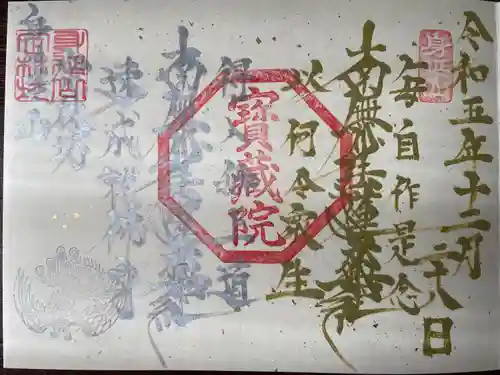 令和五年十二月二十八日
毎自作是念
南無妙法蓮華経
以何令衆生
寶藏院
得入無上道
南無妙法蓮華経
速成就佛身
身延山